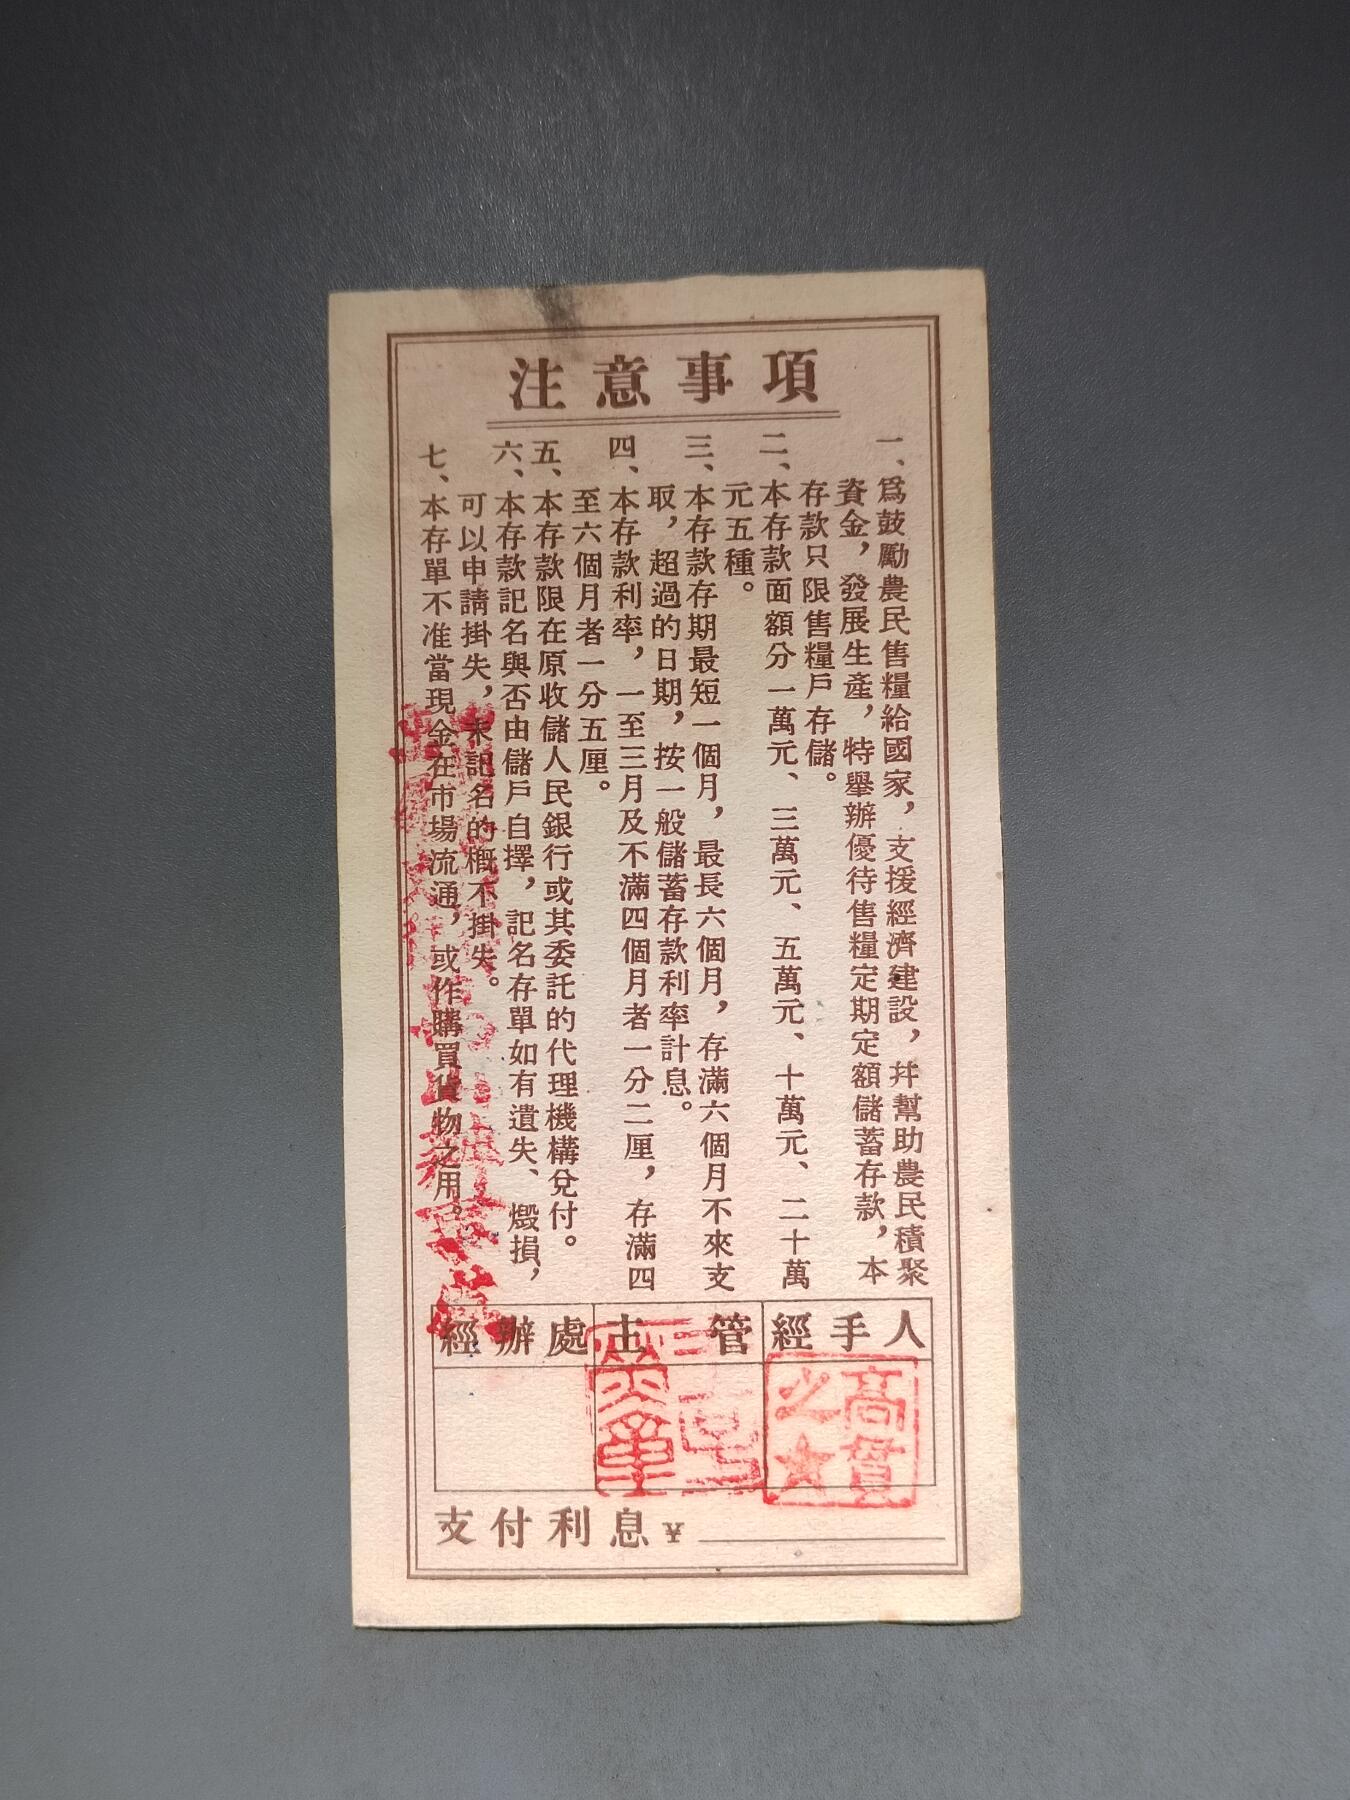 注意事項
一、爲鼓勵農民售糧給國家，支援經濟建設，幷幫助農民積聚
資金，發展生產，特舉辦優待售糧定期定額儲蓄存款，本
存款只限售糧戶存儲。
二、本存款面額分一萬元、三萬元、五萬元、十萬元、二十萬
元五種。
三、本存款存期最短一個月，最長六個月，存滿六個月不來支
取，超過的日期，按一般儲蓄存款利率計息。
四、本存款利率，一至三月及不滿四個月者一分二厘，存滿四
至六個月者一分五厘。
五、本存款限在原收儲人民銀行或其委託的代理機構兌付。
六、本存款記名與否由儲戶自擇，記名存單如有遺失、燬損，
可以申請掛失，未記名的概不掛失。
七、本存單不准當現金在市場流通，或作購買貨物之用。
經辦處 主管 經手人
高貫之
支付利息¥